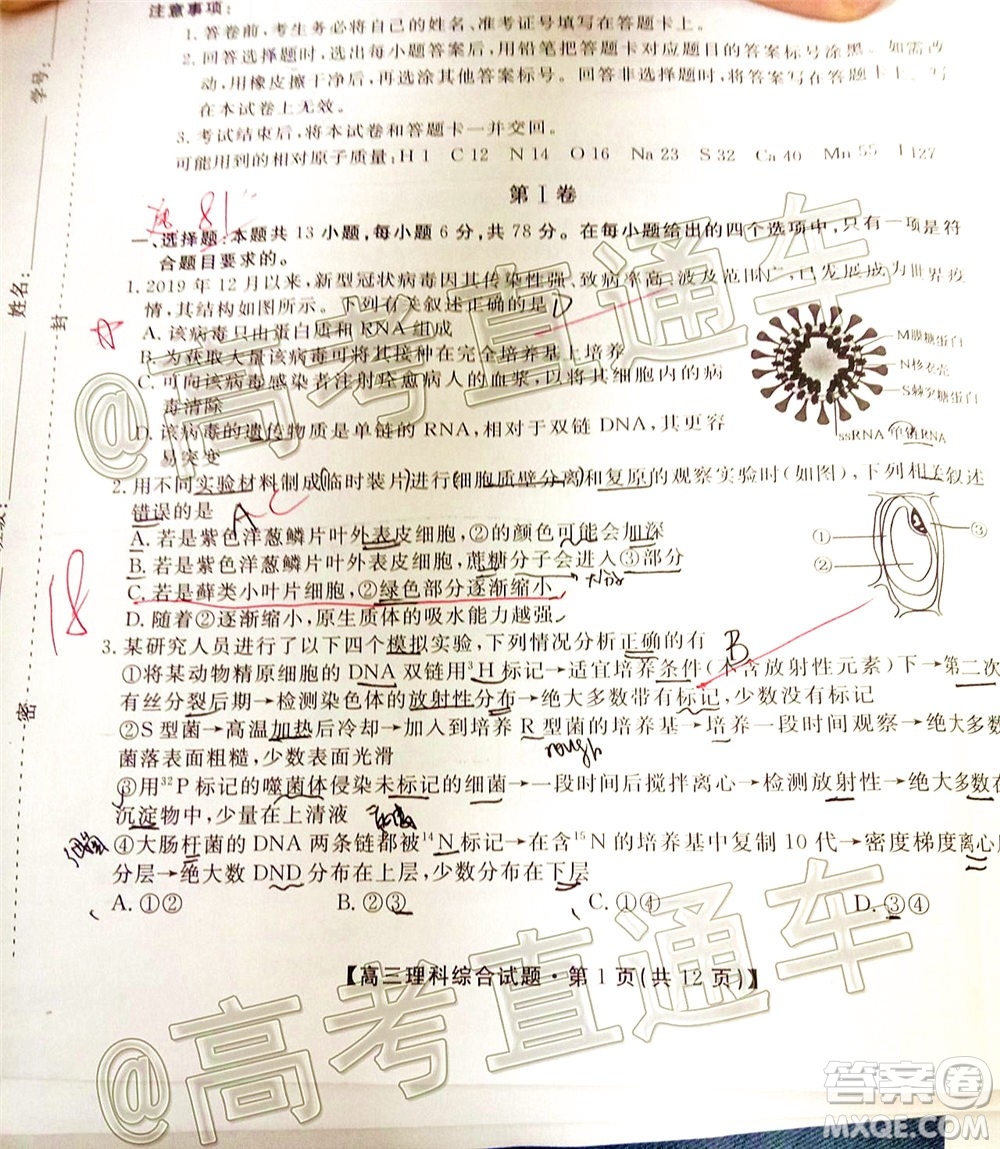 注意事项：
1. 答卷前，考生务必将自己的姓名、准考证号填写在答题卡上。
2. 回答选择题时，选出每小题答案后，用铅笔把答题卡对应题目的答案标号涂黑。如需改
动，用橡皮擦干净后，再选涂其他答案标号。回答非选择题时，将答案写在答题卡上。写
在本试卷上无效。
3. 考试结束后，将本试卷和答题卡一并交回。
可能用到的相对原子质量：H 1 C 12 N 14 O 16 Na 23 S 32 Ca 40 Mn 55 I 127
第Ⅰ卷
81
一、选择题：本题共 13 小题，每小题 6 分，共 78 分。在每小题给出的四个选项中，只有一项是符
合题目要求的。
1. 2019 年 12 月以来，新型冠状病毒因其传染性强、致病率高、波及范围广，已发展成为世界疫
情，其结构如图所示。下列有关叙述正确的是 D
A
A. 该病毒只由蛋白质和 RNA 组成
B. 为获取大量该病毒可将其接种在完全培养基上培养
C. 可向该病毒感染者注射痊愈病人的血浆，将其细胞内的病
毒清除
D. 该病毒的遗传物质是单链的 RNA，相对于双链 DNA，其更
易突变
M膜糖蛋白
N核衣壳
S棘突糖蛋白
ssRNA 单链RNA
2. 用不同实验材料制成临时装片进行细胞质壁分离和复原的观察实验时（如图），下列相关叙述
错误的是
A C
A. 若是紫色洋葱鳞片叶外表皮细胞，②的颜色可能会加深
B. 若是紫色洋葱鳞片叶外表皮细胞，蔗糖分子会进入③部分
C. 若是藓类小叶片细胞，②绿色部分逐渐缩小
D. 随着②逐渐缩小，原生质体的吸水能力越强
①
②
③
18
3. 某研究人员进行了以下四个模拟实验，下列情况分析正确的有
B
①将某动物精原细胞的 DNA 双链用³H 标记→适宜培养条件（不含放射性元素）下→第二次
有丝分裂后期→检测染色体的放射性分布→绝大多数带有标记，少数没有标记
②S 型菌→高温加热后冷却→加入到培养 R 型菌的培养基→培养一段时间观察→绝大多数
菌落表面粗糙，少数表面光滑
rough
③用³²P 标记的噬菌体侵染未标记的细菌→一段时间后搅拌离心→检测放射性→绝大多数在
沉淀物中，少量在上清液
④大肠杆菌的 DNA 两条链都被¹⁴N 标记→在含¹⁵N 的培养基中复制 10 代→密度梯度离心
分层→绝大数 DND 分布在上层，少数分布在下层
A. ①② B. ②③ C. ①④ D. ③④
【高三理科综合试题·第 1 页（共 12 页）】
学号：
姓名：
封
密
@高考直通车
@高考直通车
答案卷
MXQE.COM